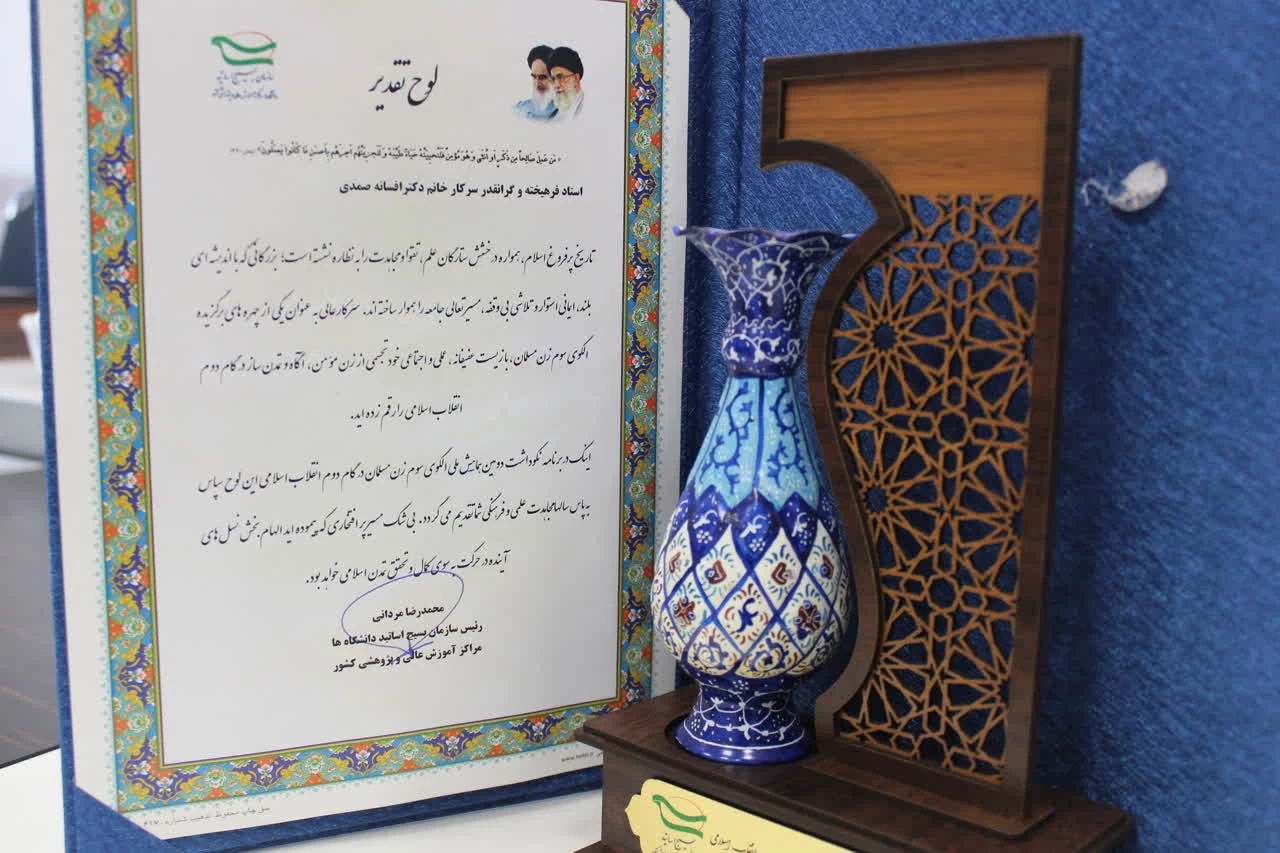 لوح تقدیر
سازمان بسیج اساتید
«مَن عَمِلَ صَالِحاً مِن ذَکَرٍ أَو أُنثَی وَ هُوَ مُؤمِنٌ فَلَنُحیِیَنَّهُ حَیَاةً طَیِّبَةً وَ لَنَجزِیَنَّهُم أَجرَهُم بِأَحسَنِ مَا کَانُوا یَعمَلُونَ»
استاد فرهیخته و گرانقدر سرکار خانم دکتر افسانه صمدی
تاریخ پرفروغ اسلام، همواره درخشش ستارگان علم، تقوا و مجاهدت را به نظاره نشسته است؛ بزرگانی که با اندیشه ای
بلند، ایمانی استوار و تلاشی بی وقفه، مسیر تعالی جامعه را هموار ساخته اند. سرکارعالی به عنوان یکی از چهره های برگزیده
الگوی سوم زن مسلمان، با زیست عفیفانه، علمی و اجتماعی خود تجسمی از زن مؤمن، آگاه و تمدن ساز در گام دوم
انقلاب اسلامی را رقم زده اید.
اینک در برنامه نکوداشت دومین همایش ملی الگوی سوم زن مسلمان در گام دوم انقلاب اسلامی این لوح سپاس
به پاس سالها مجاهدت علمی و فرهنگی شما تقدیم می گردد. بی شک مسیر پر افتخاری که پیموده اید الهام بخش نسل های
آینده در حرکت به سوی کمال و تحقق تمدن اسلامی خواهد بود.
محمدرضا مردانی
رئیس سازمان بسیج اساتید دانشگاه ها
مراکز آموزش عالی و پژوهشی کشور